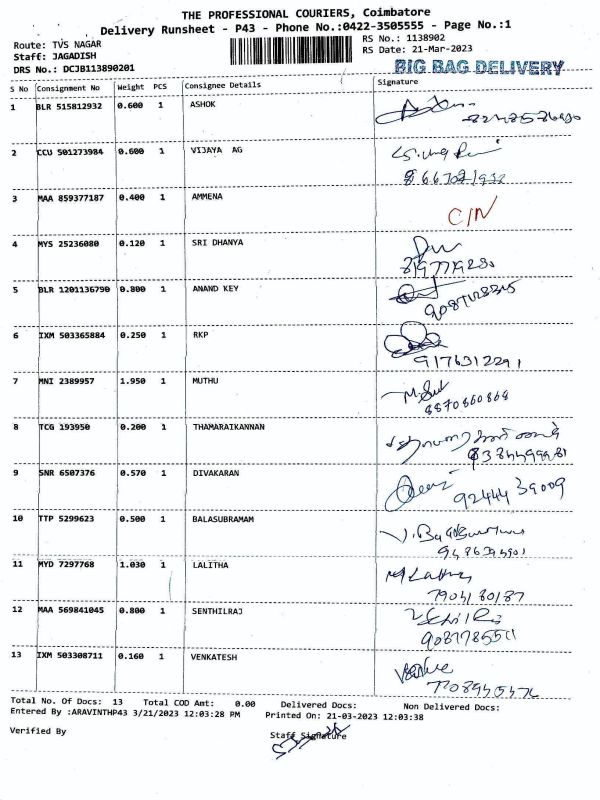 THE PROFESSIONAL COURIERS, Coimbatore
Delivery Runsheet - P43 - Phone No.:0422-3505555 - Page No.:1
Route: TVS NAGAR
RS No.: 1138902
Staff: JAGADISH
RS Date: 21-Mar-2023
DRS No.: DCJB113890201
BIG BAG DELIVERY
S No Consignment No Weight PCS Consignee Details Signature
1 BLR 515812932 0.600 1 ASHOK
2 CCU 501273984 0.600 1 VIJAYA AG
8667021932
3 MAA 859377187 0.400 1 AMMENA
C/N
4 MYS 25236080 0.120 1 SRI DHANYA
5 BLR 1201136790 0.800 1 ANAND KEY
6 IXM 503365884 0.250 1 RKP
9176312291
7 MNI 2389957 1.950 1 MUTHU
8870660868
8 TCG 193950 0.200 1 THAMARAIKANNAN
9 SNR 6507376 0.570 1 DIVAKARAN
9244439009
10 TTP 5299623 0.500 1 BALASUBRAMAM
11 MYD 7297768 1.030 1 LALITHA
M Lalitha
7904180187
12 MAA 569841045 0.800 1 SENTHILRAJ
13 IXM 503308711 0.160 1 VENKATESH
Total No. Of Docs: 13 Total COD Amt: 0.00 Delivered Docs: Non Delivered Docs:
Entered By :ARAVINTHP43 3/21/2023 12:03:28 PM Printed On: 21-03-2023 12:03:38
Verified By
Staff Signature